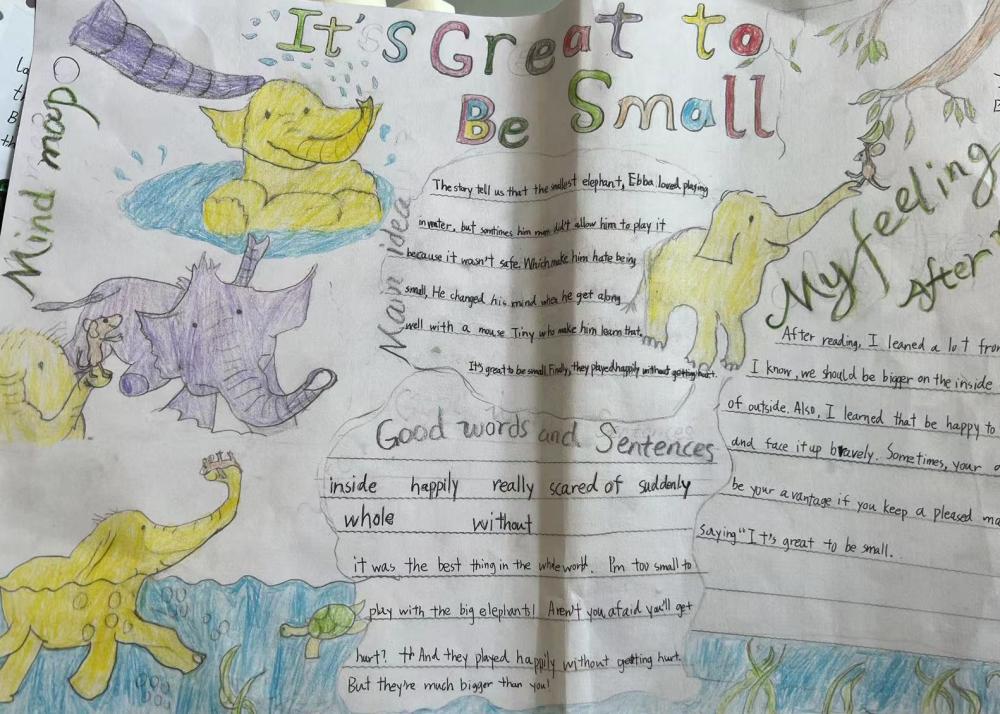 It's Great to
Be Small
Mind map
Main idea
The story tell us that the smallest elephant, Ebba loved playing
in water, but somtimes him mom didn't allow him to play it
because it wasn't safe. Which make him hate being
small, He changed his mind when he get along
well with a mouse Tiny who make him learn that.
It's great to be small. Finally, they played happily without getting hurt.
Good words and Sentences
inside happily really scared of suddenly
whole without
it was the best thing in the whole world. I'm too small to
play with the big elephants! Aren't you afaid you'll get
hurt? And they played happily without getting hurt.
But they're much bigger than you!
My feeling
After
After reading, I leaned a lot from
I know, we should be bigger on the inside
of outside. Also, I learned that be happy to
and face it up bravely. Sometimes, your
be your avantage if you keep a pleased
saying "It's great to be small.